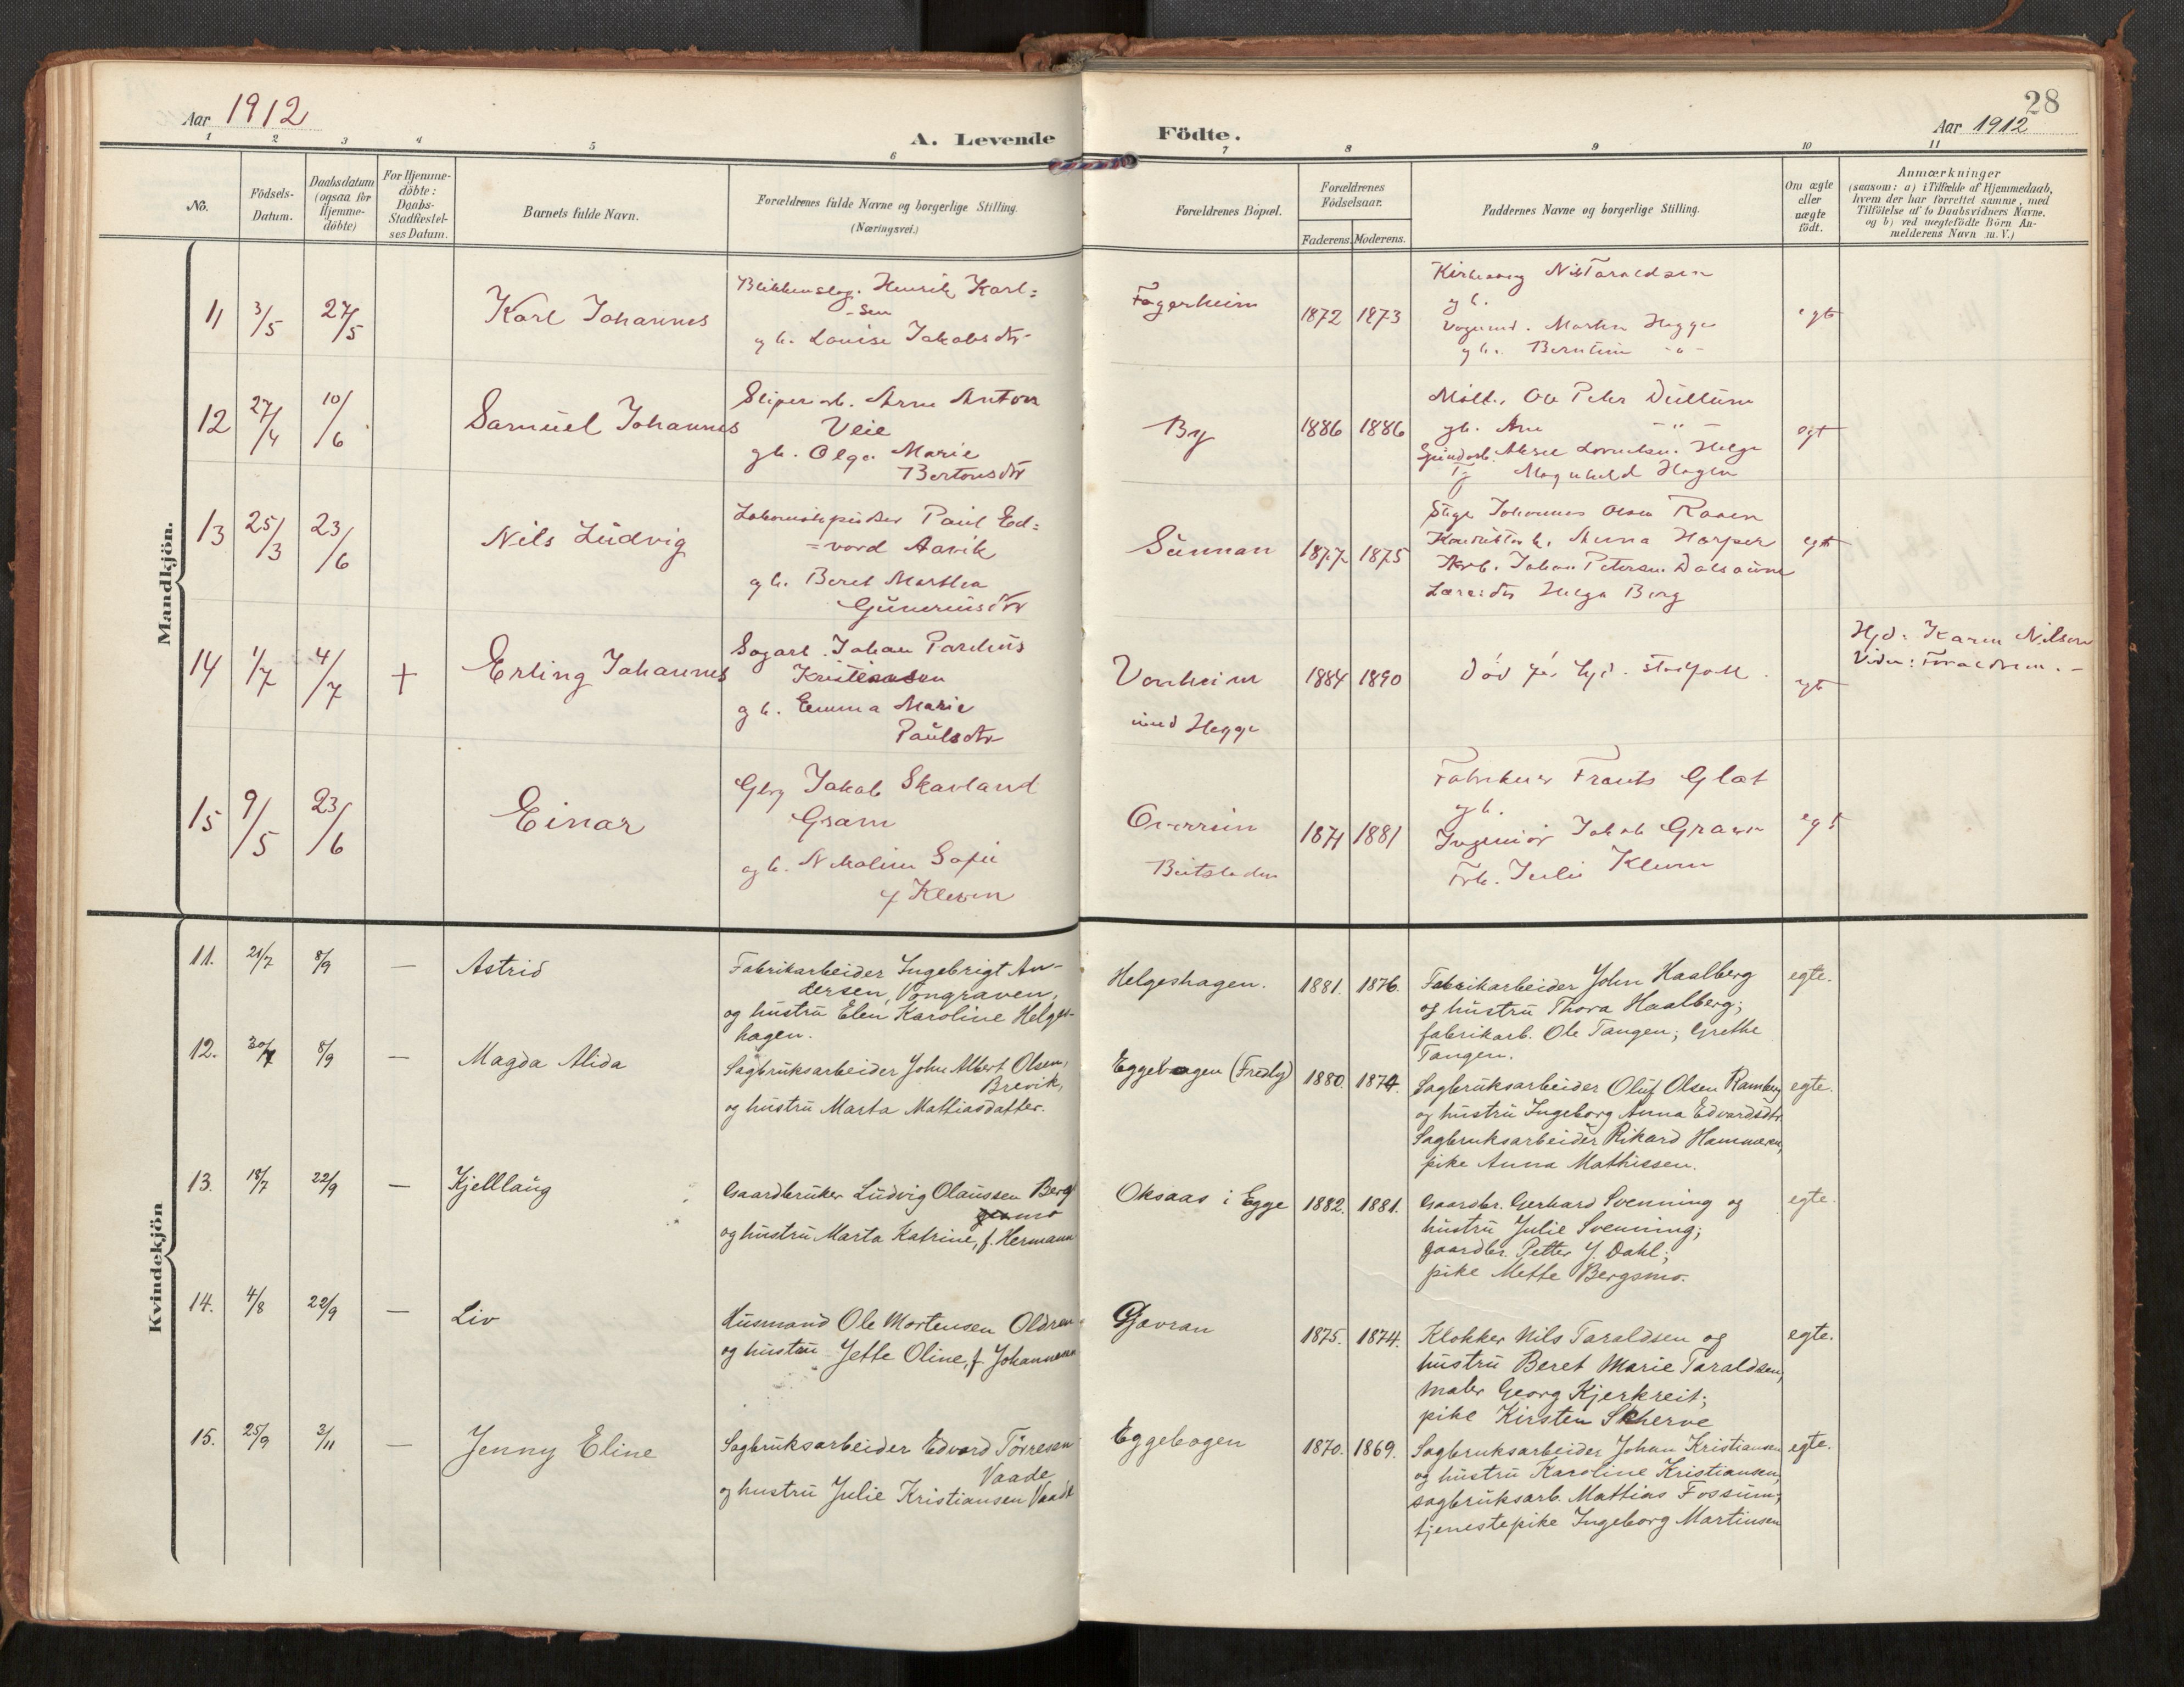 Aar 1912
A. Levende
Födte.
28
Aar 1912
1 2 3 4 5 6 7 8 9 10 11
No.
Födsels-
Datum.
Daabsdatum
(ogsaa for
Hjemme-
döbte)
For Hjemme-
döbte:
Daabs-
Stadfæstel-
ses Datum.
Barnets fulde Navn.
Forældrenes fulde Navne og borgerlige Stilling.
(Næringsvei.)
Forældrenes Bopæl.
Forældrenes
Födselsaar.
Faderens. Moderens.
Faddernes Navne og borgerlige Stilling.
Om ægte
eller
uægte
födt.
Anmærkninger
(saasom: a) i Tilfælde af Hjemmedaab,
hvem der har forrettet samme, med
Tilföielse af to Daabsvidners Navne,
og b) ved uægtefödte Börn An-
melderens Navn m. V.)
Mandkjön.
11 3/5 27/5
Karl Johannes
Blikkenslag. Henrik Karl=
-sen
gh. Louise Jakobsdtr
Fagerheim
1872 1873
Nils Taraldsen
gh.
Martin Hegge
gh. Berntine -o-
egt
12 27/4 10/6
Samuel Johannes
Sliperarb. Arne Anton
Veie
gh. Olga Marie
By
1886 1886
Ole Peter Dullum
gh. Ane -"-
Magnhild Hagen
egt
13 25/3 23/6
Nils Ludvig
Lokomotivpudser Paul Ed=
=vard Aavik
gh. Beret Marthea
Guneriusdtr
Sunnan
1877 1875
Johannes Olsen
Anna Harper
Arb. Johan Petersen
Helga Berg
egt
14 1/7 4/7 +
Erling Johannes
Sagarb. Johan Parelius
Kristiansen
gh. Emma Marie
Paulsdtr
Vonheim
und Hegge
1884 1890
død før hjd. stadfæst.
egt
Hjd: Karen Nilsen
Vidn: Forældrene.-
15 9/5 23/6
Einar
Gbr Jakob Skavland
Gram
gh. Nikoline Sofie
f Klevem
Overrein
Beitstaden
1871 1881
Frants Glat
gh.
Ingeniør Jakob Gram
Frk. Julie
egt
Kvindekjön
11. 21/7 8/9 —
Astrid
Fabrikarbeider Ingebrigt An-
dersen, Vongraven,
og hustru Elen Karoline Helges-
hagen.
Helgeshagen.
1881. 1876.
Fabrikarbeider John Haalberg
og hustru Thora Haalberg;
fabrikarb. Ole Tangen; Grethe
Tangen.
egte.
12. 30/7 8/9 —
Magda Alida
Sagbruksarbeider John Albert Olsen,
Brevik,
og hustru Marta Mathiasdatter.
Eggebogen (Fredly)
1880. 1874.
Sagbruksarbeider Oluf Olsen Ramberg
og hustru Ingeborg Anna Edvardsdtr.
Sagbruksarbeider Rikard Hammeren,
pike Anna Mathissen.
egte.
13. 18/7 22/9 —
Kjellaug
Gaardbruker Ludvig Olaussen Berg
og hustru Marta Katrine, f. Hermann
Oksaas i Egge
1882. 1881.
Gaardbr. Gerhard Svenning og
hustru Julie Svenning;
gaardbr. Petter J. Dahl;
pike Mette Bergsmo.
egte.
14. 4/8 22/9 —
Liv
Husmand Ole Mortensen Oldren
og hustru Jette Oline, f. Johannesen
Gjævran
1875. 1874.
Klokker Nils Taraldsen og
hustru Beret Marie Taraldsen,
maler Georg Kjerkreit;
pike Kirsten Skherve
egte.
15. 25/9 3/11 —
Jenny Eline
Sagbruksarbeider Edvard Törresen
Vaade
og hustru Julie Kristiansen Vaade
Eggebogen
1870. 1869.
Sagbruksarbeider Johan Kristiansen
og hustru Karoline Kristiansen,
sagbruksarb. Mathias Fossum;
tjenestepike Ingeborg Martinsen
egte.